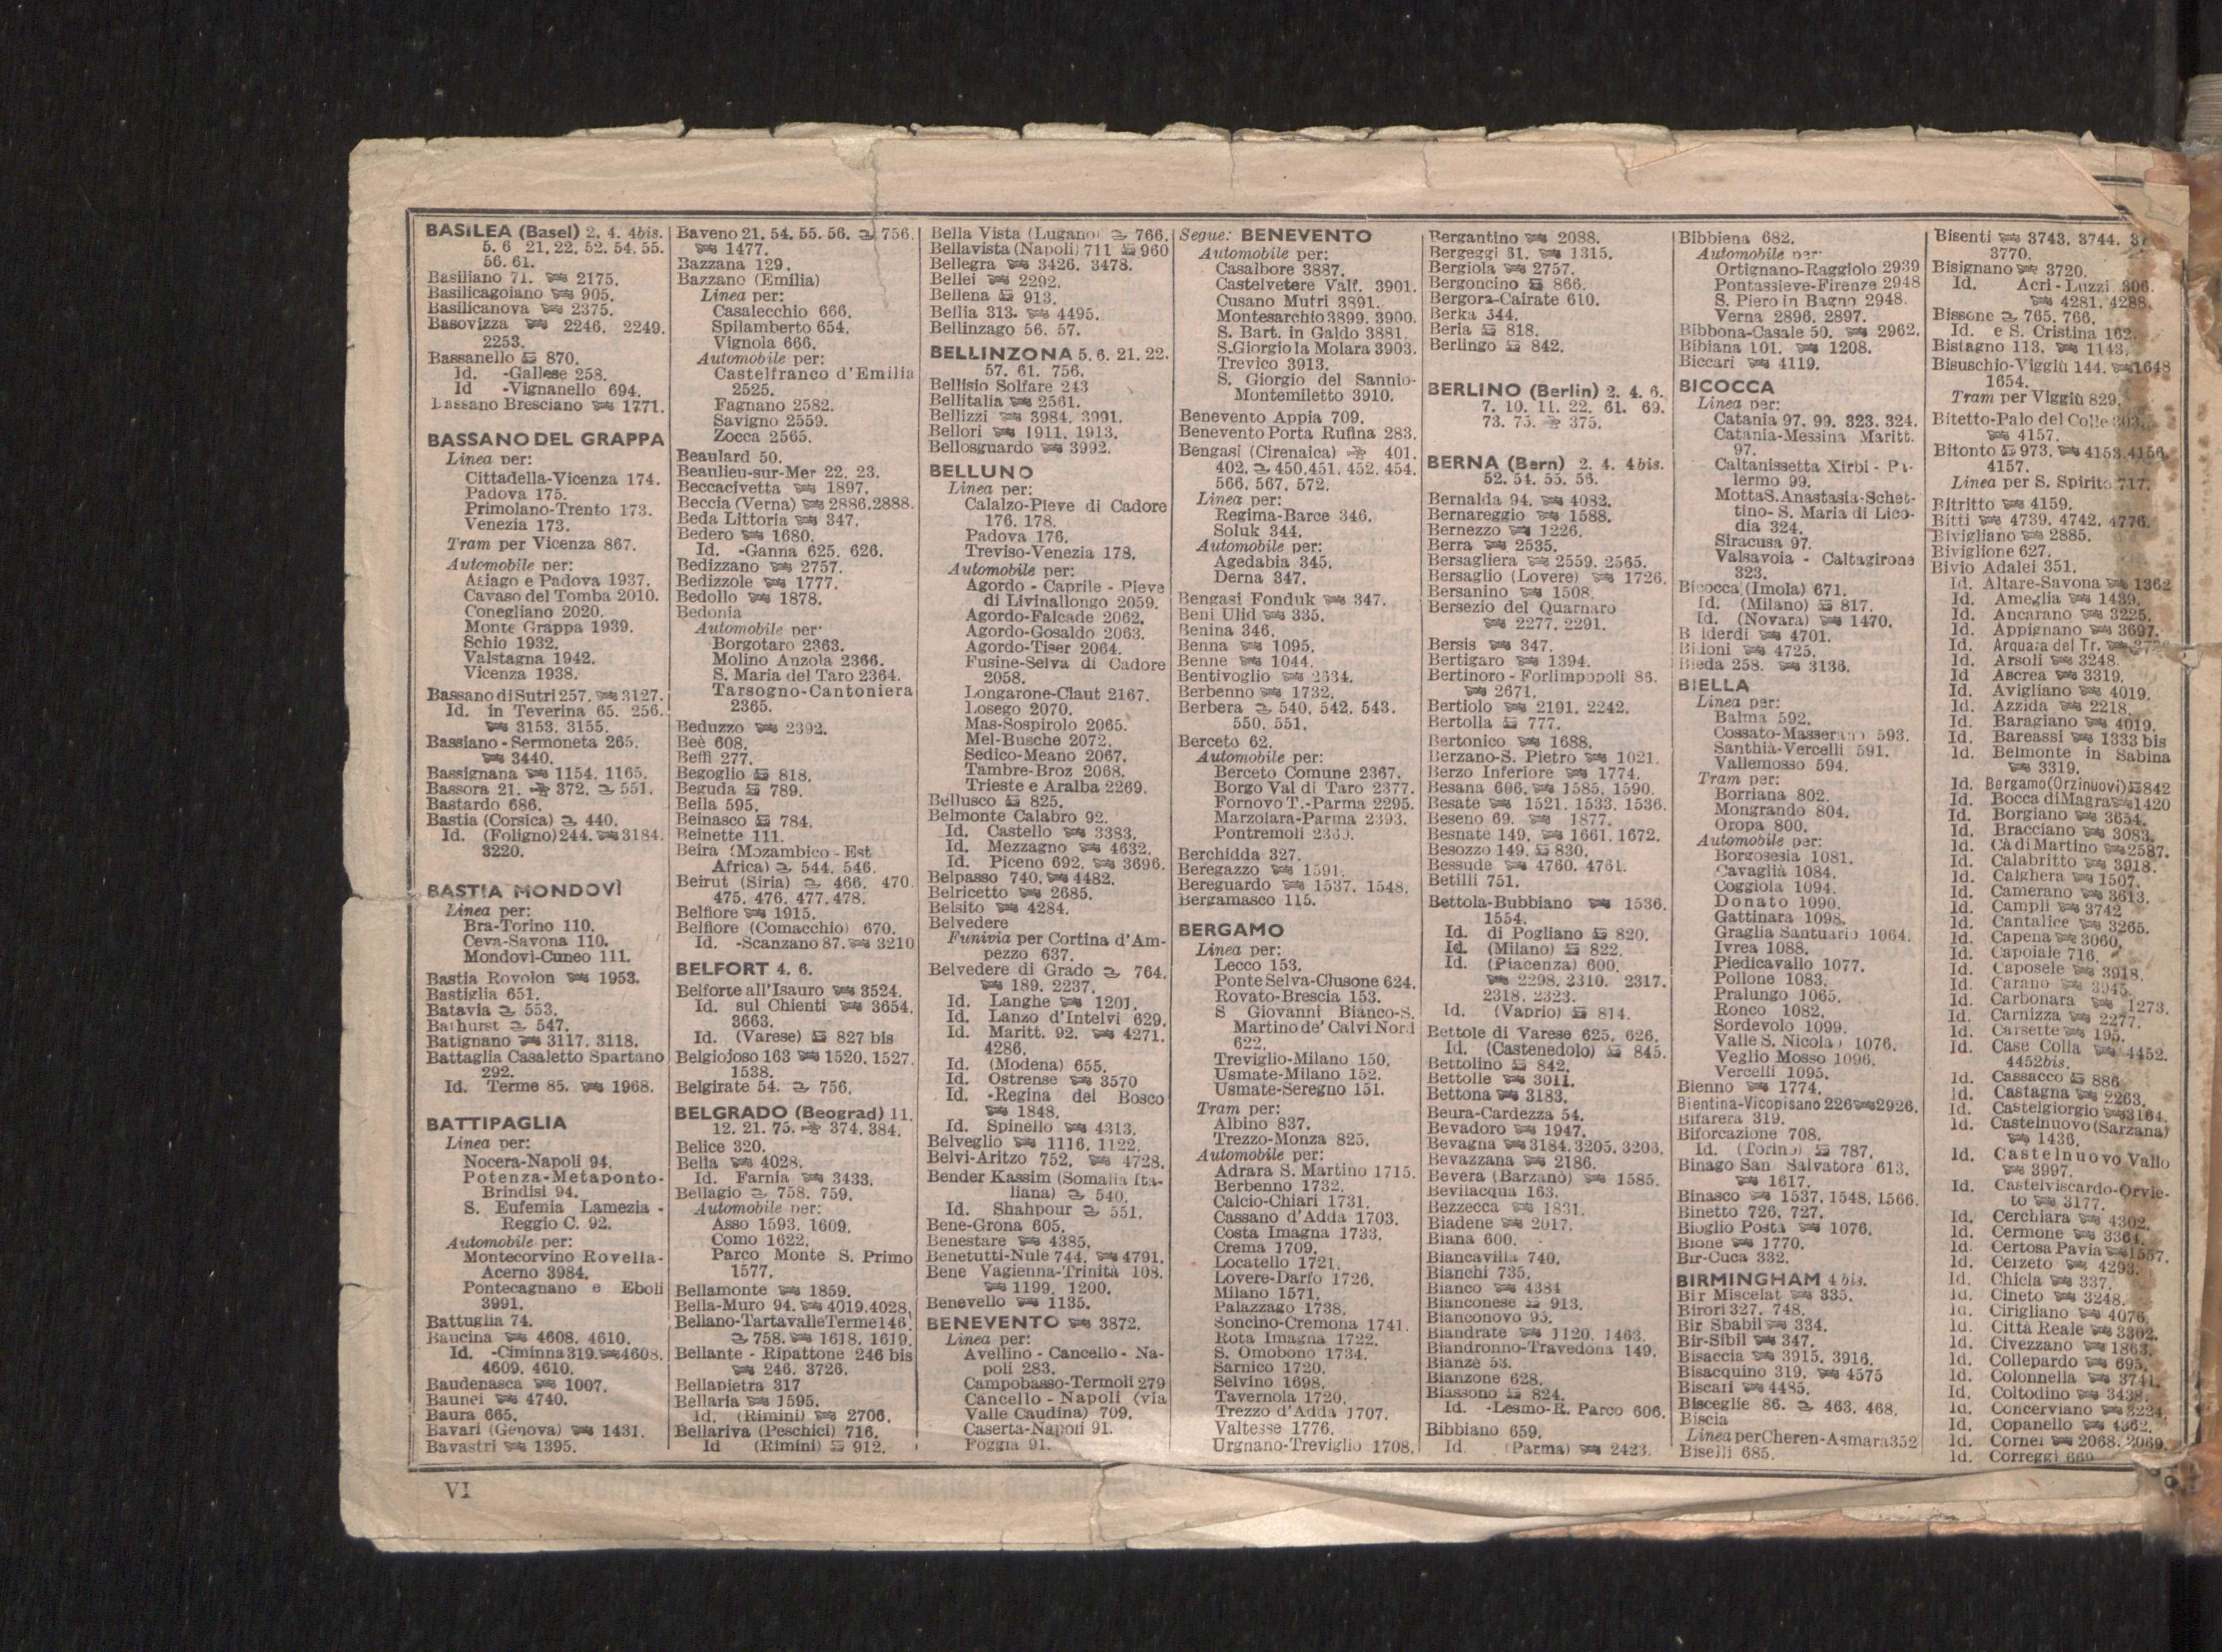 BASILEA (Basel) 2. 4. 4bis.
5. 6 21. 22. 52. 54. 55.
56. 61.
Basiliano 71. 2175.
Basilicagoiano 905.
Basilicanova 2375.
Basovizza 2246. 2249.
2253.
Bassanello 870.
Id. -Gallese 258.
Id -Vignanello 694.
Bassano Bresciano 1771.
BASSANO DEL GRAPPA
Linea per:
Cittadella-Vicenza 174.
Padova 175.
Primolano-Trento 173.
Venezia 173.
Tram per Vicenza 867.
Automobile per:
Asiago e Padova 1937.
Cavaso del Tomba 2010.
Conegliano 2020.
Monte Grappa 1939.
Schio 1932.
Valstagna 1942.
Vicenza 1938.
Bassano di Sutri 257. 3127.
Id. in Teverina 65. 256.
3153. 3155.
Bassiano-Sermoneta 265.
3440.
Bassignana 1154. 1165.
Bassora 21. 372. 551.
Bastardo 686.
Bastia (Corsica) 440.
Id. (Foligno) 244. 3184.
3220.
BASTIA MONDOVÌ
Linea per:
Bra-Torino 110.
Ceva-Savona 110.
Mondovì-Cuneo 111.
Bastia Rovolon 1953.
Bastiglia 651.
Batavia 553.
Bathurst 547.
Batignano 3117. 3118.
Battaglia Casaletto Spartano
292.
Id. Terme 85. 1968.
BATTIPAGLIA
Linea per:
Nocera-Napoli 94.
Potenza-Metaponto-
Brindisi 94.
S. Eufemia Lamezia -
Reggio C. 92.
Automobile per:
Montecorvino Rovella-
Acerno 3984.
Pontecagnano e Eboli
3991.
Battuglia 74.
Baucina 4608. 4610.
Id. -Ciminna 319. 4608.
4609. 4610.
Baudenasca 1007.
Baunei 4740.
Baura 665.
Bavari (Genova) 1431.
Bavastri 1395.
Baveno 21. 54. 55. 56. 756.
1477.
Bazzana 129.
Bazzano (Emilia)
Linea per:
Casalecchio 666.
Spilamberto 654.
Vignola 666.
Automobile per:
Castelfranco d'Emilia
2525.
Fagnano 2582.
Savigno 2559.
Zocca 2565.
Beaulard 50.
Beaulieu-sur-Mer 22. 23.
Beccacivetta 1897.
Beccia (Verna) 2886.2888.
Beda Littoria 347.
Bedero 1680.
Id. -Ganna 625. 626.
Bedizzano 2757.
Bedizzole 1777.
Bedollo 1878.
Bedonia
Automobile per:
Borgotaro 2363.
Molino Anzola 2366.
S. Maria del Taro 2364.
Tarsogno-Cantoniera
2365.
Beduzzo 2392.
Beè 608.
Beffi 277.
Begoglio 818.
Beguda 789.
Beila 595.
Beinasco 784.
Beinette 111.
Beira (Mozambico - Est
Africa) 544. 546.
Beirut (Siria) 466. 470.
475. 476. 477. 478.
Belfiore 1915.
Belfiore (Comacchio) 670.
Id. -Scanzano 87. 3210
BELFORT 4. 6.
Belforte all'Isauro 3524.
Id. sul Chienti 3654.
3663.
Id. (Varese) 827 bis
Belgiojoso 163 1520. 1527.
1538.
Belgirate 54. 756.
BELGRADO (Beograd) 11.
12. 21. 75. 374. 384.
Belice 320.
Bella 4028.
Id. Farnia 3433.
Bellagio 758. 759.
Automobile per:
Asso 1593. 1609.
Como 1622.
Parco Monte S. Primo
1577.
Bellamonte 1859.
Bella-Muro 94. 4019.4028.
Bellano-Tartavalle Terme 146.
758. 1618. 1619.
Bellante - Ripattone 246 bis
246. 3726.
Bellapietra 317
Bellaria 1595.
Id. (Rimini) 2706.
Bellariva (Peschici) 716.
Id (Rimini) 912.
Bella Vista (Lugano) 766.
Bellavista (Napoli) 711 960
Bellegra 3426. 3478.
Bellei 2292.
Bellena 913.
Bellia 313. 4495.
Bellinzago 56. 57.
BELLINZONA 5. 6. 21. 22.
57. 61. 756.
Bellisio Solfare 243
Bellitalia 2561.
Bellizzi 3984. 3991.
Bellori 1911. 1913.
Bellosguardo 3992.
BELLUNO
Linea per:
Calalzo-Pieve di Cadore
176. 178.
Padova 176.
Treviso-Venezia 178.
Automobile per:
Agordo - Caprile - Pieve
di Livinallongo 2059.
Agordo-Falcade 2062.
Agordo-Gosaldo 2063.
Agordo-Tiser 2064.
Fusine-Selva di Cadore
2058.
Longarone-Claut 2167.
Losego 2070.
Mas-Sospirolo 2065.
Mel-Busche 2072.
Sedico-Meano 2067.
Tambre-Broz 2068.
Trieste e Aralba 2269.
Bellusco 825.
Belmonte Calabro 92.
Id. Castello 3383.
Id. Mezzagno 4632.
Id. Piceno 692. 3696.
Belpasso 740. 4482.
Belricetto 2685.
Belsito 4284.
Belvedere
Funivia per Cortina d'Am-
pezzo 637.
Belvedere di Grado 764.
189. 2237.
Id. Langhe 1201.
Id. Lanzo d'Intelvi 629.
Id. Maritt. 92. 4271.
4286.
Id. (Modena) 655.
Id. Ostrense 3570
Id. -Regina del Bosco
1848.
Id. Spinello 4313.
Belveglio 1116. 1122.
Belvi-Aritzo 752. 4728.
Bender Kassim (Somalia Ita-
liana) 540.
Id. Shahpour 551.
Bene-Grona 605.
Benestare 4385.
Benetutti-Nule 744. 4791.
Bene Vagienna-Trinità 108.
1199. 1200.
Benevello 1135.
BENEVENTO 3872.
Linea per:
Avellino - Cancello - Na-
poli 283.
Campobasso-Termoli 279
Cancello - Napoli (via
Valle Caudina) 709.
Caserta-Napoli 91.
Foggia 91.
Segue: BENEVENTO
Automobile per:
Casalbore 3887.
Castelvetere Valf. 3901.
Cusano Mutri 3891.
Montesarchio 3899. 3900.
S. Bart. in Galdo 3881.
S.Giorgio la Molara 3903.
Trevico 3913.
S. Giorgio del Sannio-
Montemiletto 3910.
Benevento Appia 709.
Benevento Porta Rufina 283.
Bengasi (Cirenaica) 401.
402. 450.451. 452. 454.
566. 567. 572.
Linea per:
Regima-Barce 346.
Soluk 344.
Automobile per:
Agedabia 345.
Derna 347.
Bengasi Fonduk 347.
Beni Ulid 335.
Benina 346.
Benna 1095.
Benne 1044.
Bentivoglio 2634.
Berbenno 1732.
Berbera 540. 542. 543.
550. 551.
Berceto 62.
Automobile per:
Berceto Comune 2367.
Borgo Val di Taro 2377.
Fornovo T.-Parma 2295.
Marzolara-Parma 2393.
Pontremoli
Berchidda 327.
Beregazzo 1591.
Bereguardo 1537. 1548.
Bergamasco 115.
BERGAMO
Linea per:
Lecco 153.
Ponte Selva-Clusone 624.
Rovato-Brescia 153.
S Giovanni Bianco-S.
Martino de' Calvi Nord
622.
Treviglio-Milano 150.
Usmate-Milano 152.
Usmate-Seregno 151.
Tram per:
Albino 837.
Trezzo-Monza 825.
Automobile per:
Adrara S. Martino 1715.
Berbenno 1732.
Calcio-Chiari 1731.
Cassano d'Adda 1703.
Costa Imagna 1733.
Crema 1709.
Locatello 1721.
Lovere-Darfo 1726.
Milano 1571.
Palazzago 1738.
Soncino-Cremona 1741.
Rota Imagna 1722.
S. Omobono 1734.
Sarnico 1720.
Selvino 1698.
Tavernola 1720.
Trezzo d'Adda 1707.
Valtesse 1776.
Urgnano-Treviglio 1708.
Bergantino 2088.
Bergeggi 31. 1315.
Bergiola 2757.
Bergoncino 866.
Bergora-Cairate 610.
Berka 344.
Berla 818.
Berlingo 842.
BERLINO (Berlin) 2. 4. 6.
7. 10. 11. 22. 61. 69.
73. 75. 375.
BERNA (Bern) 2. 4. 4bis.
52. 54. 55. 56.
Bernalda 94. 4082.
Bernareggio 1588.
Bernezzo 1226.
Berra 2535.
Bersagliera 2559. 2565.
Bersaglio (Lovere) 1726.
Bersanino 1508.
Bersezio del Quarnaro
2277. 2291.
Bersis 347.
Bertigaro 1394.
Bertinoro - Forlimpopoli 86.
2671.
Bertiolo 2191. 2242.
Bertolla 777.
Bertonico 1688.
Berzano-S. Pietro 1021.
Berzo Inferiore 1774.
Besana 606. 1585. 1590.
Besate 1521. 1533. 1536.
Beseno 69. 1877.
Besnate 149. 1661. 1672.
Besozzo 149. 830.
Bessude 4760. 4761.
Betilli 751.
Bettola-Bubbiano 1536.
1554.
Id. di Pogliano 820.
Id. (Milano) 822.
Id. (Piacenza) 600.
2298. 2310. 2317.
2318. 2323.
Id. (Vaprio) 814.
Bettole di Varese 625. 626.
Id. (Castenedolo) 845.
Bettolino 842.
Bettolle 3011.
Bettona 3183.
Beura-Cardezza 54.
Bevadoro 1947.
Bevagna 3184. 3205. 3206.
Bevazzana 2186.
Bevera (Barzanò) 1585.
Bevilacqua 163.
Bezzecca 1831.
Biadene 2017.
Biana 600.
Biancavilla 740.
Bianchi 735.
Bianco 4384
Bianconese 913.
Bianconovo 95.
Biandrate 1120. 1463.
Biandronno-Travedona 149.
Bianzè 53.
Bianzone 628.
Biassono 824.
Id. -Lesmo-R. Parco 606.
Bibbiano 659.
Id. (Parma) 2423.
Bibbiena 682.
Automobile per:
Ortignano-Raggiolo 2939
Pontassieve-Firenze 2948
S. Piero in Bagno 2948.
Verna 2896. 2897.
Bibbona-Casale 50. 2962.
Bibiana 101. 1208.
Biccari 4119.
BICOCCA
Linea per:
Catania 97. 99. 323. 324.
Catania-Messina Maritt.
97.
Caltanissetta Xirbi - Pa-
lermo 99.
Motta S. Anastasia-Schet-
tino- S. Maria di Lico-
dia 324.
Siracusa 97.
Valsavoia - Caltagirone
323.
Bicocca (Imola) 671.
Id. (Milano) 817.
Id. (Novara) 1470.
4701.
4725.
Bieda 258. 3136.
BIELLA
Linea per:
Balma 592.
Cossato-Masserano 593.
Santhià-Vercelli 591.
Vallemosso 594.
Tram per:
Borriana 802.
Mongrando 804.
Oropa 800.
Automobile per:
Borgosesia 1081.
Cavaglià 1084.
Coggiola 1094.
Donato 1090.
Gattinara 1098.
Graglia Santuario 1064.
Ivrea 1088.
Piedicavallo 1077.
Pollone 1083.
Pralungo 1065.
Ronco 1082.
Sordevolo 1099.
Valle S. Nicolao 1076.
Veglio Mosso 1096.
Vercelli 1095.
Bienno 1774.
Bientina-Vicopisano 226 2926.
Bifarera 319.
Biforcazione 708.
Id. (Torino) 787.
Binago San Salvatore 613.
1617.
Binasco 1537. 1548. 1566.
Binetto 726. 727.
Bioglio Posta 1076.
Bione 1770.
Bir-Cuca 332.
BIRMINGHAM 4 bis.
Bir Miscelat 335.
Birori 327. 748.
Bir Sbabil 334.
Bir-Sibil 347.
Bisaccia 3915. 3916.
Bisacquino 319. 4575
Biscari 4485.
Bisceglie 86. 463. 468.
Biscia
Linea per Cheren-Asmara 352
Biselli 685.
Bisenti 3743. 3744.
3770.
Bisignano 3720.
Id. Acri - Luzzi 306.
4281. 4288.
Bissone 765. 766.
Id. e S. Cristina 162.
Bistagno 113. 1143.
Bisuschio-Viggiù 144. 1648
1654.
Tram per Viggiù 829.
Bitetto-Palo del Colle
4157.
Bitonto 973. 4153. 4156.
4157.
Linea per S. Spirito 717.
Bitritto 4159.
Bitti 4739. 4742. 4776.
Bivigliano 2885.
Biviglione 627.
Bivio Adalei 351.
Id. Altare-Savona 1362
Id. Ameglia 1439.
Id. Ancarano 3225.
Id. Appignano 3697.
Id. Arquata del Tr.
Id. Arsoli 3248.
Id Ascrea 3319.
Id. Avigliano 4019.
Id. Azzida 2218.
Id. Baragiano 4019.
Id. Bareassi 1333 bis
Id. Belmonte in Sabina
3319.
Id. Bergamo (Orzinuovi) 842
Id. Bocca di Magra 1420
Id. Borgiano 3654.
Id. Bracciano 3083.
Id. Cà di Martino 2587.
Id. Calabritto 3918.
Id. Calghera 1507.
Id. Camerano 3613.
Id. Campli 3742
Id. Cantalice 3265.
Id. Capena 3060.
Id. Capoiale 716.
Id. Caposele 3918.
Id. Carano 3945.
Id. Carbonara 1273.
Id. Carnizza 2277.
Id. Carsette 195.
Id. Case Colla 4452.
4452bis.
Id. Cassacco 886
Id. Castagna 2263.
Id. Castelgiorgio 3164.
Id. Castelnuovo (Sarzana)
1436.
Id. Castelnuovo Vallo
3997.
Id. Castelviscardo-Orvie-
to 3177.
Id. Cerchiara 4302.
Id. Cermone 3364.
Id. Certosa Pavia 1557.
Id. Cerzeto 4293.
Id. Chicla 337.
Id. Cineto 3248.
Id. Cirigliano 4076.
Id. Città Reale 3302.
Id. Civezzano 1863.
Id. Collepardo 695.
Id. Colonnella 3741.
Id. Coltodino 3438.
Id. Concerviano
Id. Copanello 4362.
Id. Cornei 2068. 2069.
Id. Correggi
VI